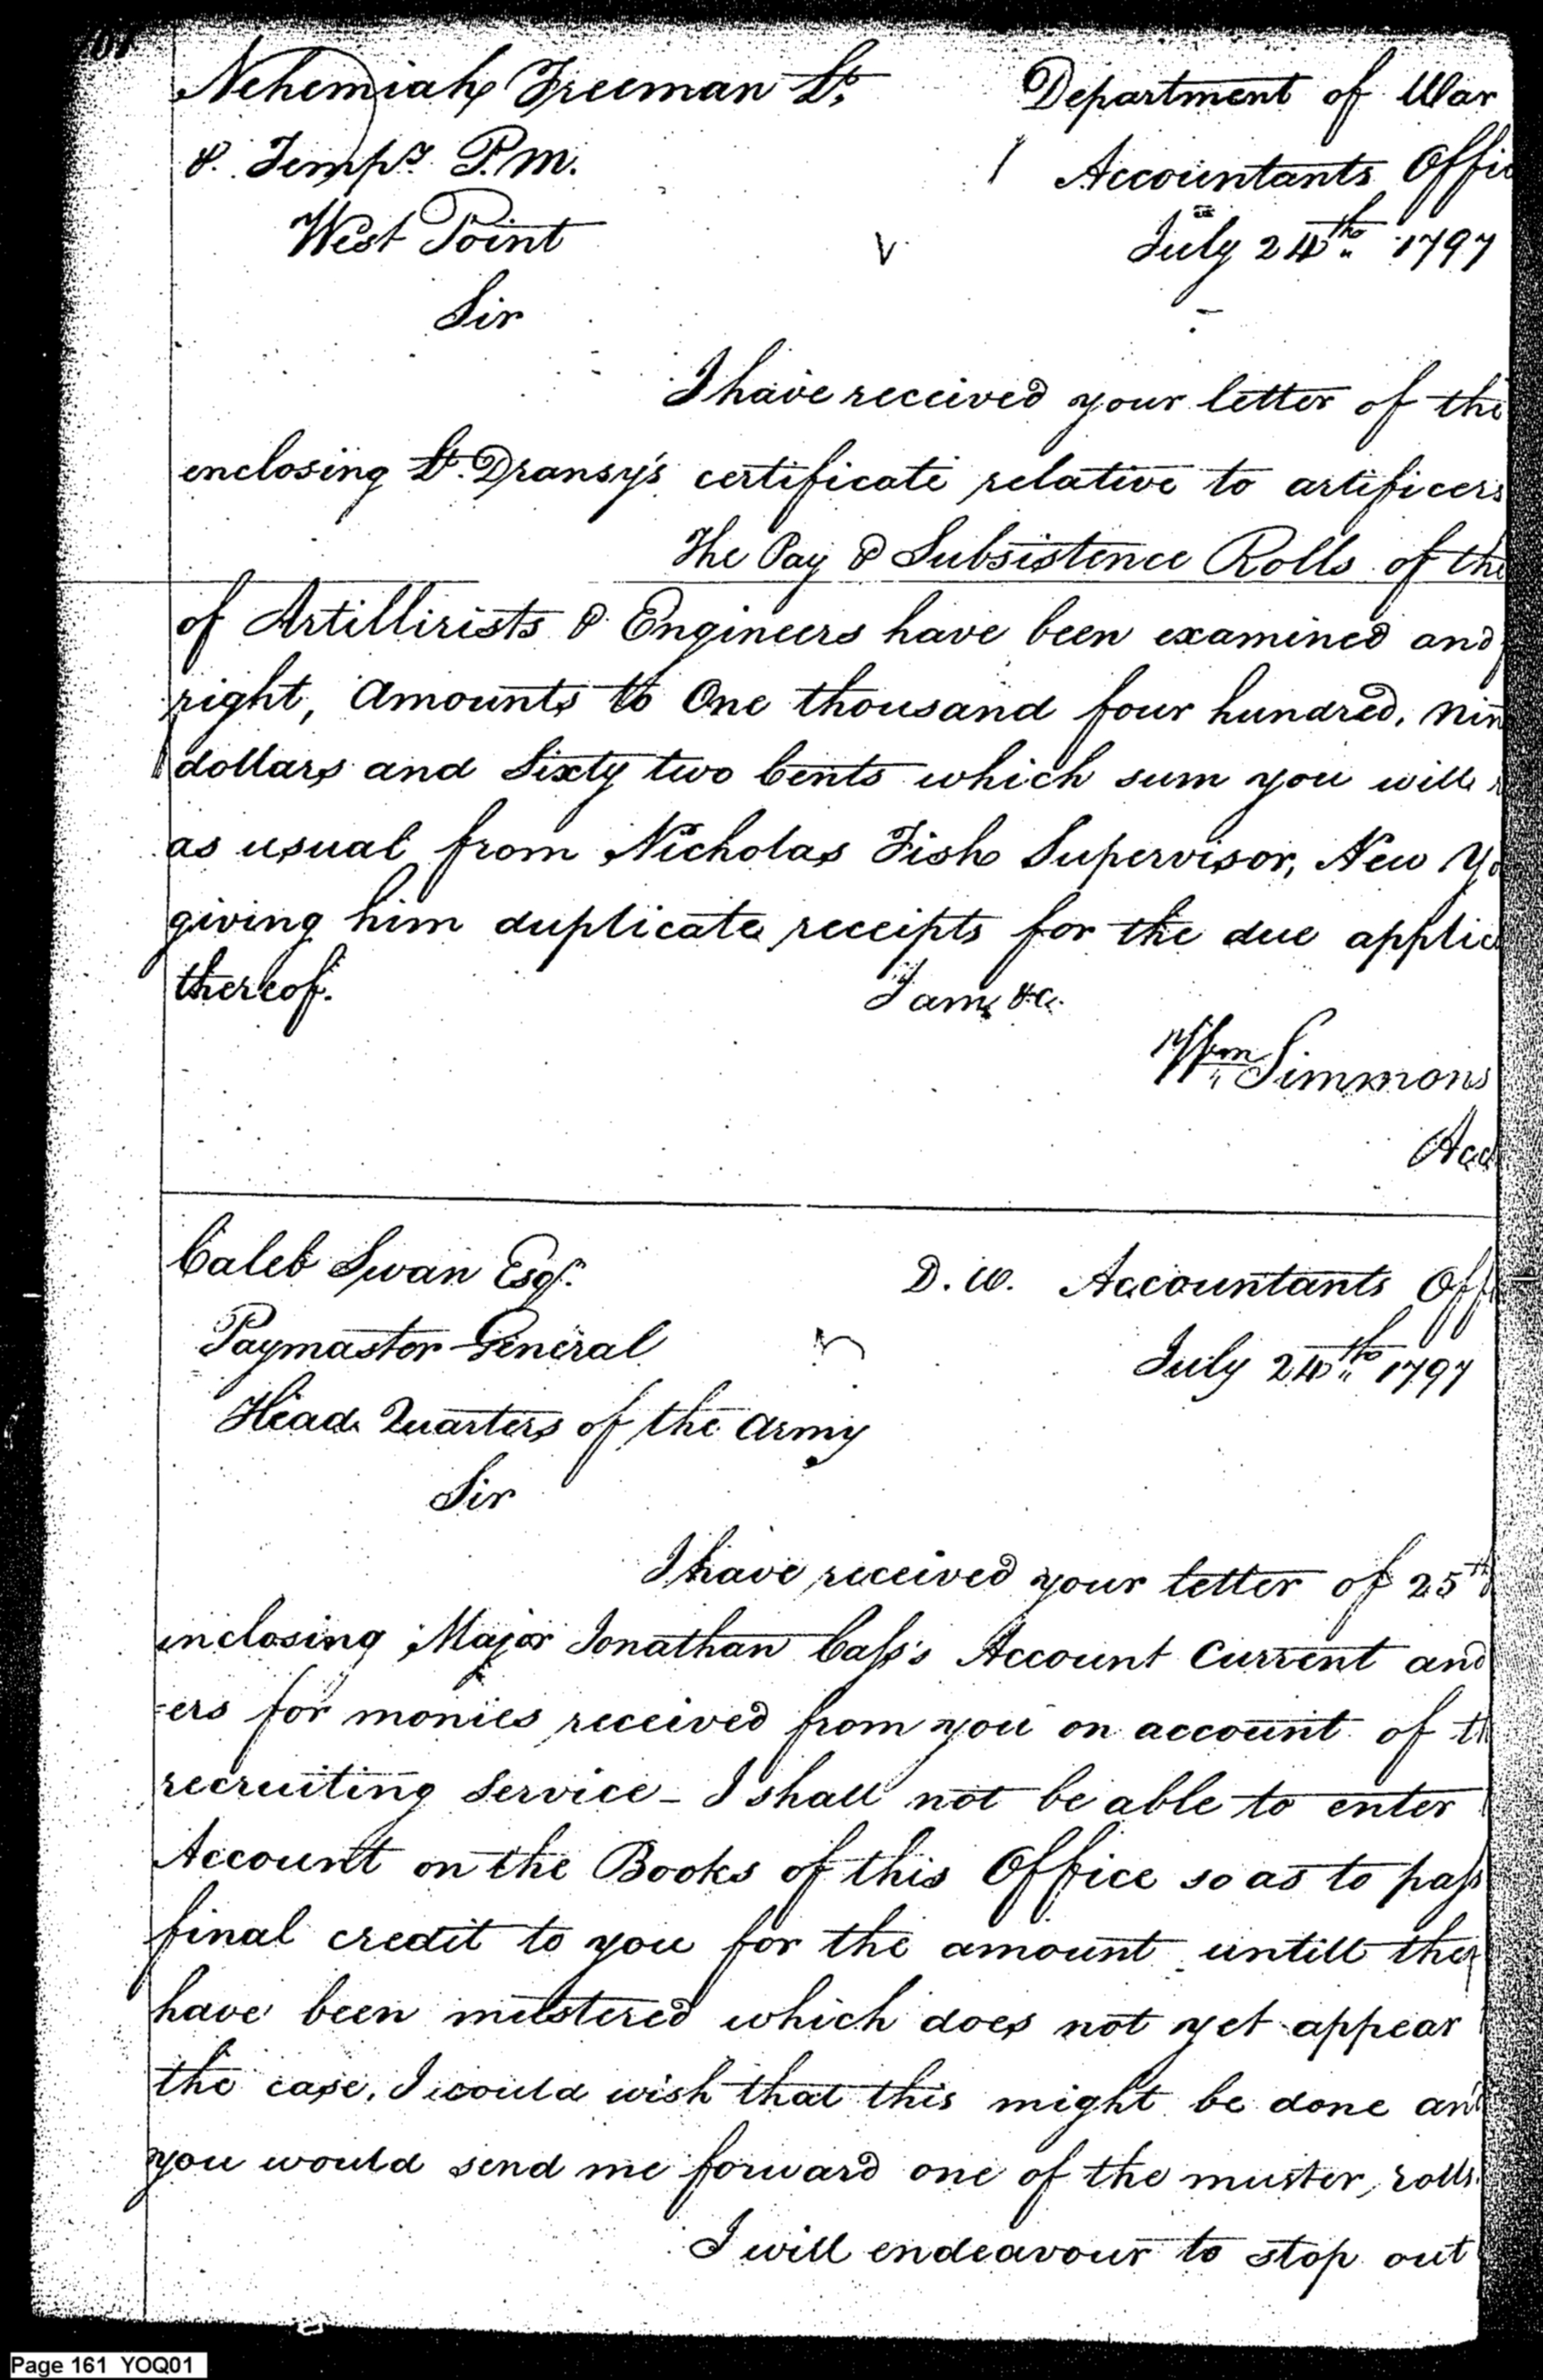 Nehemiah Freeman Lt. Department of War
& Tempy. P.M. Accountants Offic
West Point July 24th. 1797
Sir
I have received your letter of the
enclosing Lt. Dransy's certificate relative to artificers
The Pay & Subsistence Rolls of the
of Artillirists & Engineers have been examined and
right, amounts to One thousand four hundred, nin
dollars and Sixty two Cents which sum you will
as usual from Nicholas Fish Supervisor, New Yo
giving him duplicate receipts for the due applic
thereof. I am, &c.
Wm Simmons
Acc
Caleb Swan Esqr. D. W. Accountants Off
Paymaster General July 24th. 1797
Head Quarters of the Army
Sir
I have received your letter of 25th
inclosing Major Jonathan Cass's Account Current and
-ers for monies received from you on account of th
recruiting service - I shall not be able to enter
Account on the Books of this Office so as to pass
final credit to you for the amount untill they
have been mustered which does not yet appear
the case, I would wish that this might be done and
you would send me forward one of the muster rolls.
I will endeavour to stop out
Page 161 YOQ01